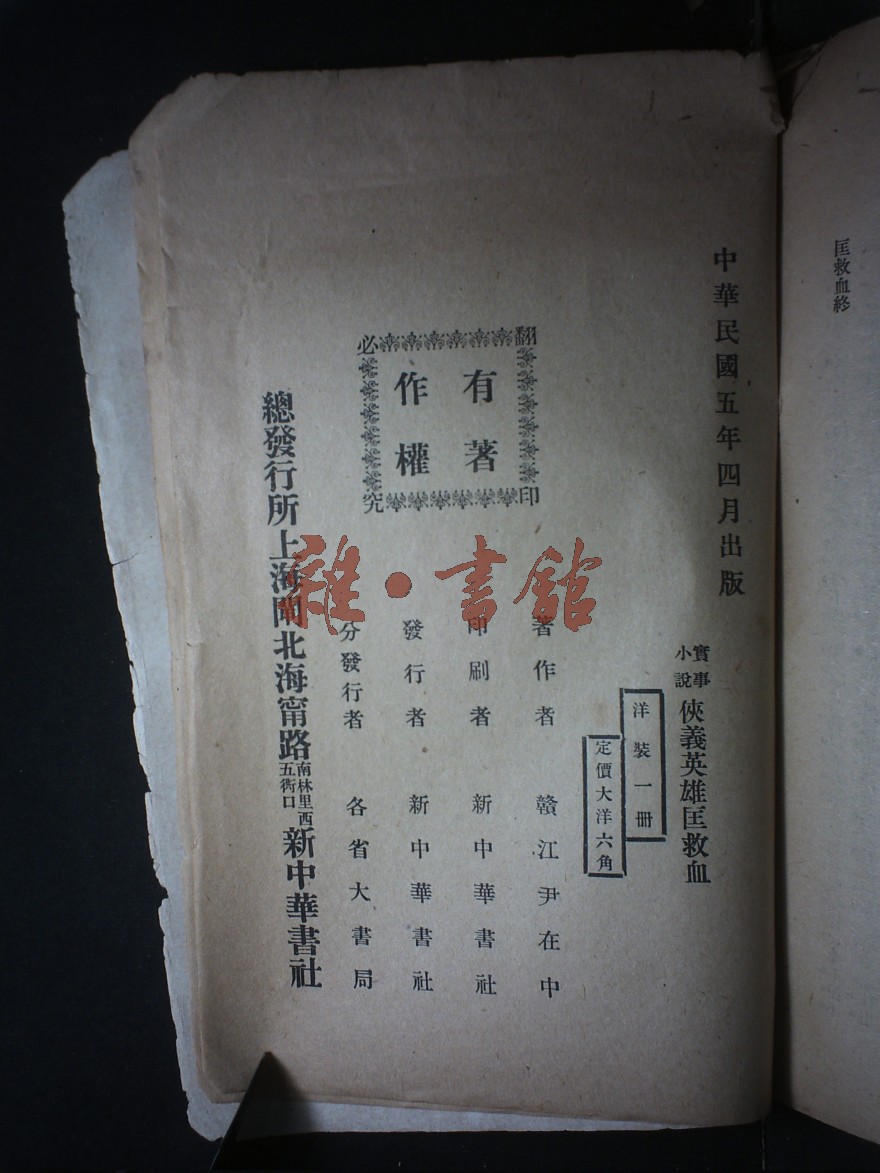 匡救血終
中華民國五年四月出版
實事小說 俠義英雄匡救血
洋裝一冊
定價大洋六角
著作者 贛江尹在中
印刷者 新中華書社
發行者 新中華書社
分發行者 各省大書局
翻印必究
有著作權
總發行所上海閘北海甯路南林里西五衖口新中華書社
雜·書館